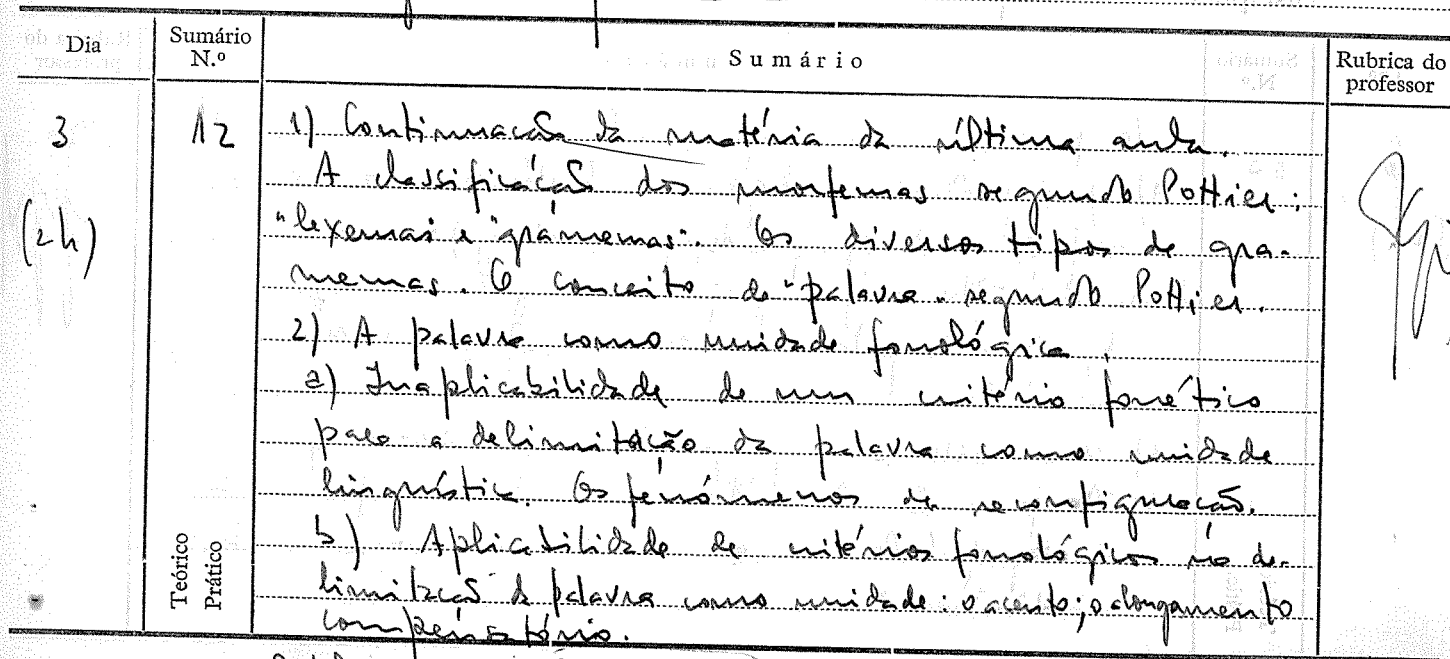 Dia
Sumário N.º
Sumário
Rubrica do professor
3
(2h)
12
Teórico
Prático
1) Continuação da matéria da última aula.
A classificação dos morfemas segundo Pottier:
"lexemas e "gramemas". Os diversos tipos de gra-
memas. O conceito de "palavra" segundo Pottier.
2) A palavra como unidade fonológica.
a) Inaplicabilidade de um critério fonético
para a delimitação da palavra como unidade
linguística. Os fenómenos de reconfiguração.
b) Aplicabilidade de critérios fonológicos na de-
limitação da palavra como unidade: o acento; o alongamento
compensatório.